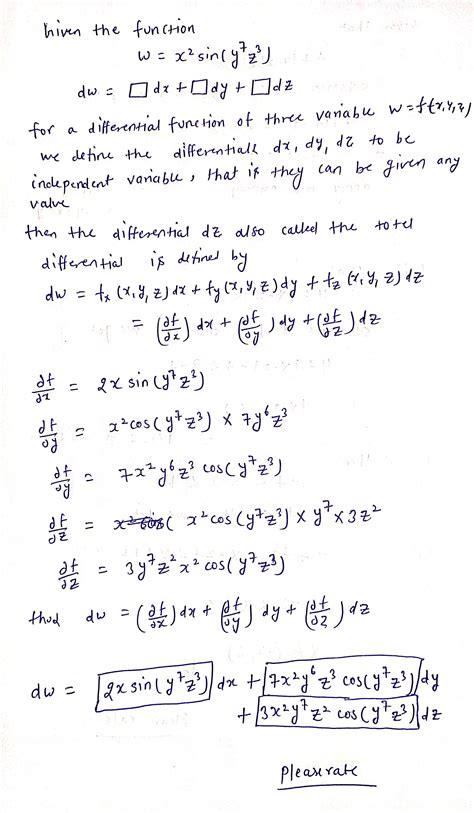 Given the function
w = x² sin(y⁷z³)
dw = □dx + □dy + □dz
for a differential function of three variable w=f(x,y,z)
we define the differentials dx, dy, dz to be
independent variable, that is they can be given any
value
then the differential dz also called the totel
differential is defined by
dw = fx (x,y,z)dx + fy(x,y,z)dy + fz (x,y,z)dz
= (∂f/∂x) dx + (∂f/∂y) dy + (∂f/∂z) dz
∂f/∂x = 2x sin(y⁷z³)
∂f/∂y = x²cos(y⁷z³) × 7y⁶z³
∂f/∂y = 7x²y⁶z³ cos(y⁷z³)
∂f/∂z = x²cos( x²cos(y⁷z³) × y⁷×3z²
∂f/∂z = 3y⁷z²x² cos(y⁷z³)
thud dw = (∂f/∂x) dx + (∂f/∂y) dy + (∂f/∂z) dz
dw = 2x sin(y⁷z³) dx + 7x²y⁶z³ cos(y⁷z³) dy
+ 3x²y⁷z² cos(y⁷z³) dz
please rate